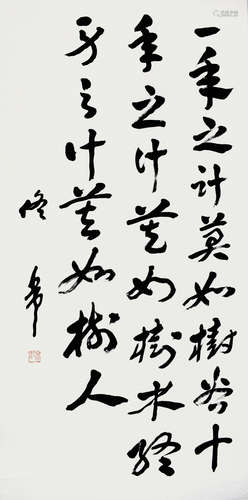 一年之计莫如樹谷十
年之计莫如樹木终
身之计莫如樹人